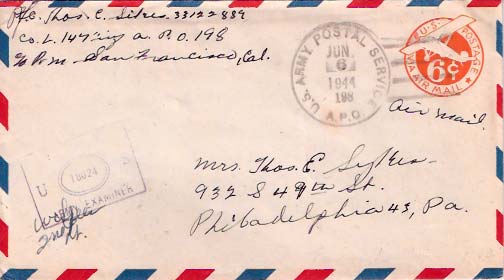 Pfc. Thos. E. Sykes 33122889
Co. L. 147 Inf. A.P.O. 198
c/o P.M. San Francisco, Cal.
U.S. ARMY POSTAL SERVICE
JUN
6
1944
198
A.P.O.
U.S. POSTAGE
6¢
VIA AIR MAIL
Air mail
Mrs. Thos. E. Sykes
932 S 49th St.
Philadelphia 43, Pa.
U S
18024
EXAMINER
2nd Lt.